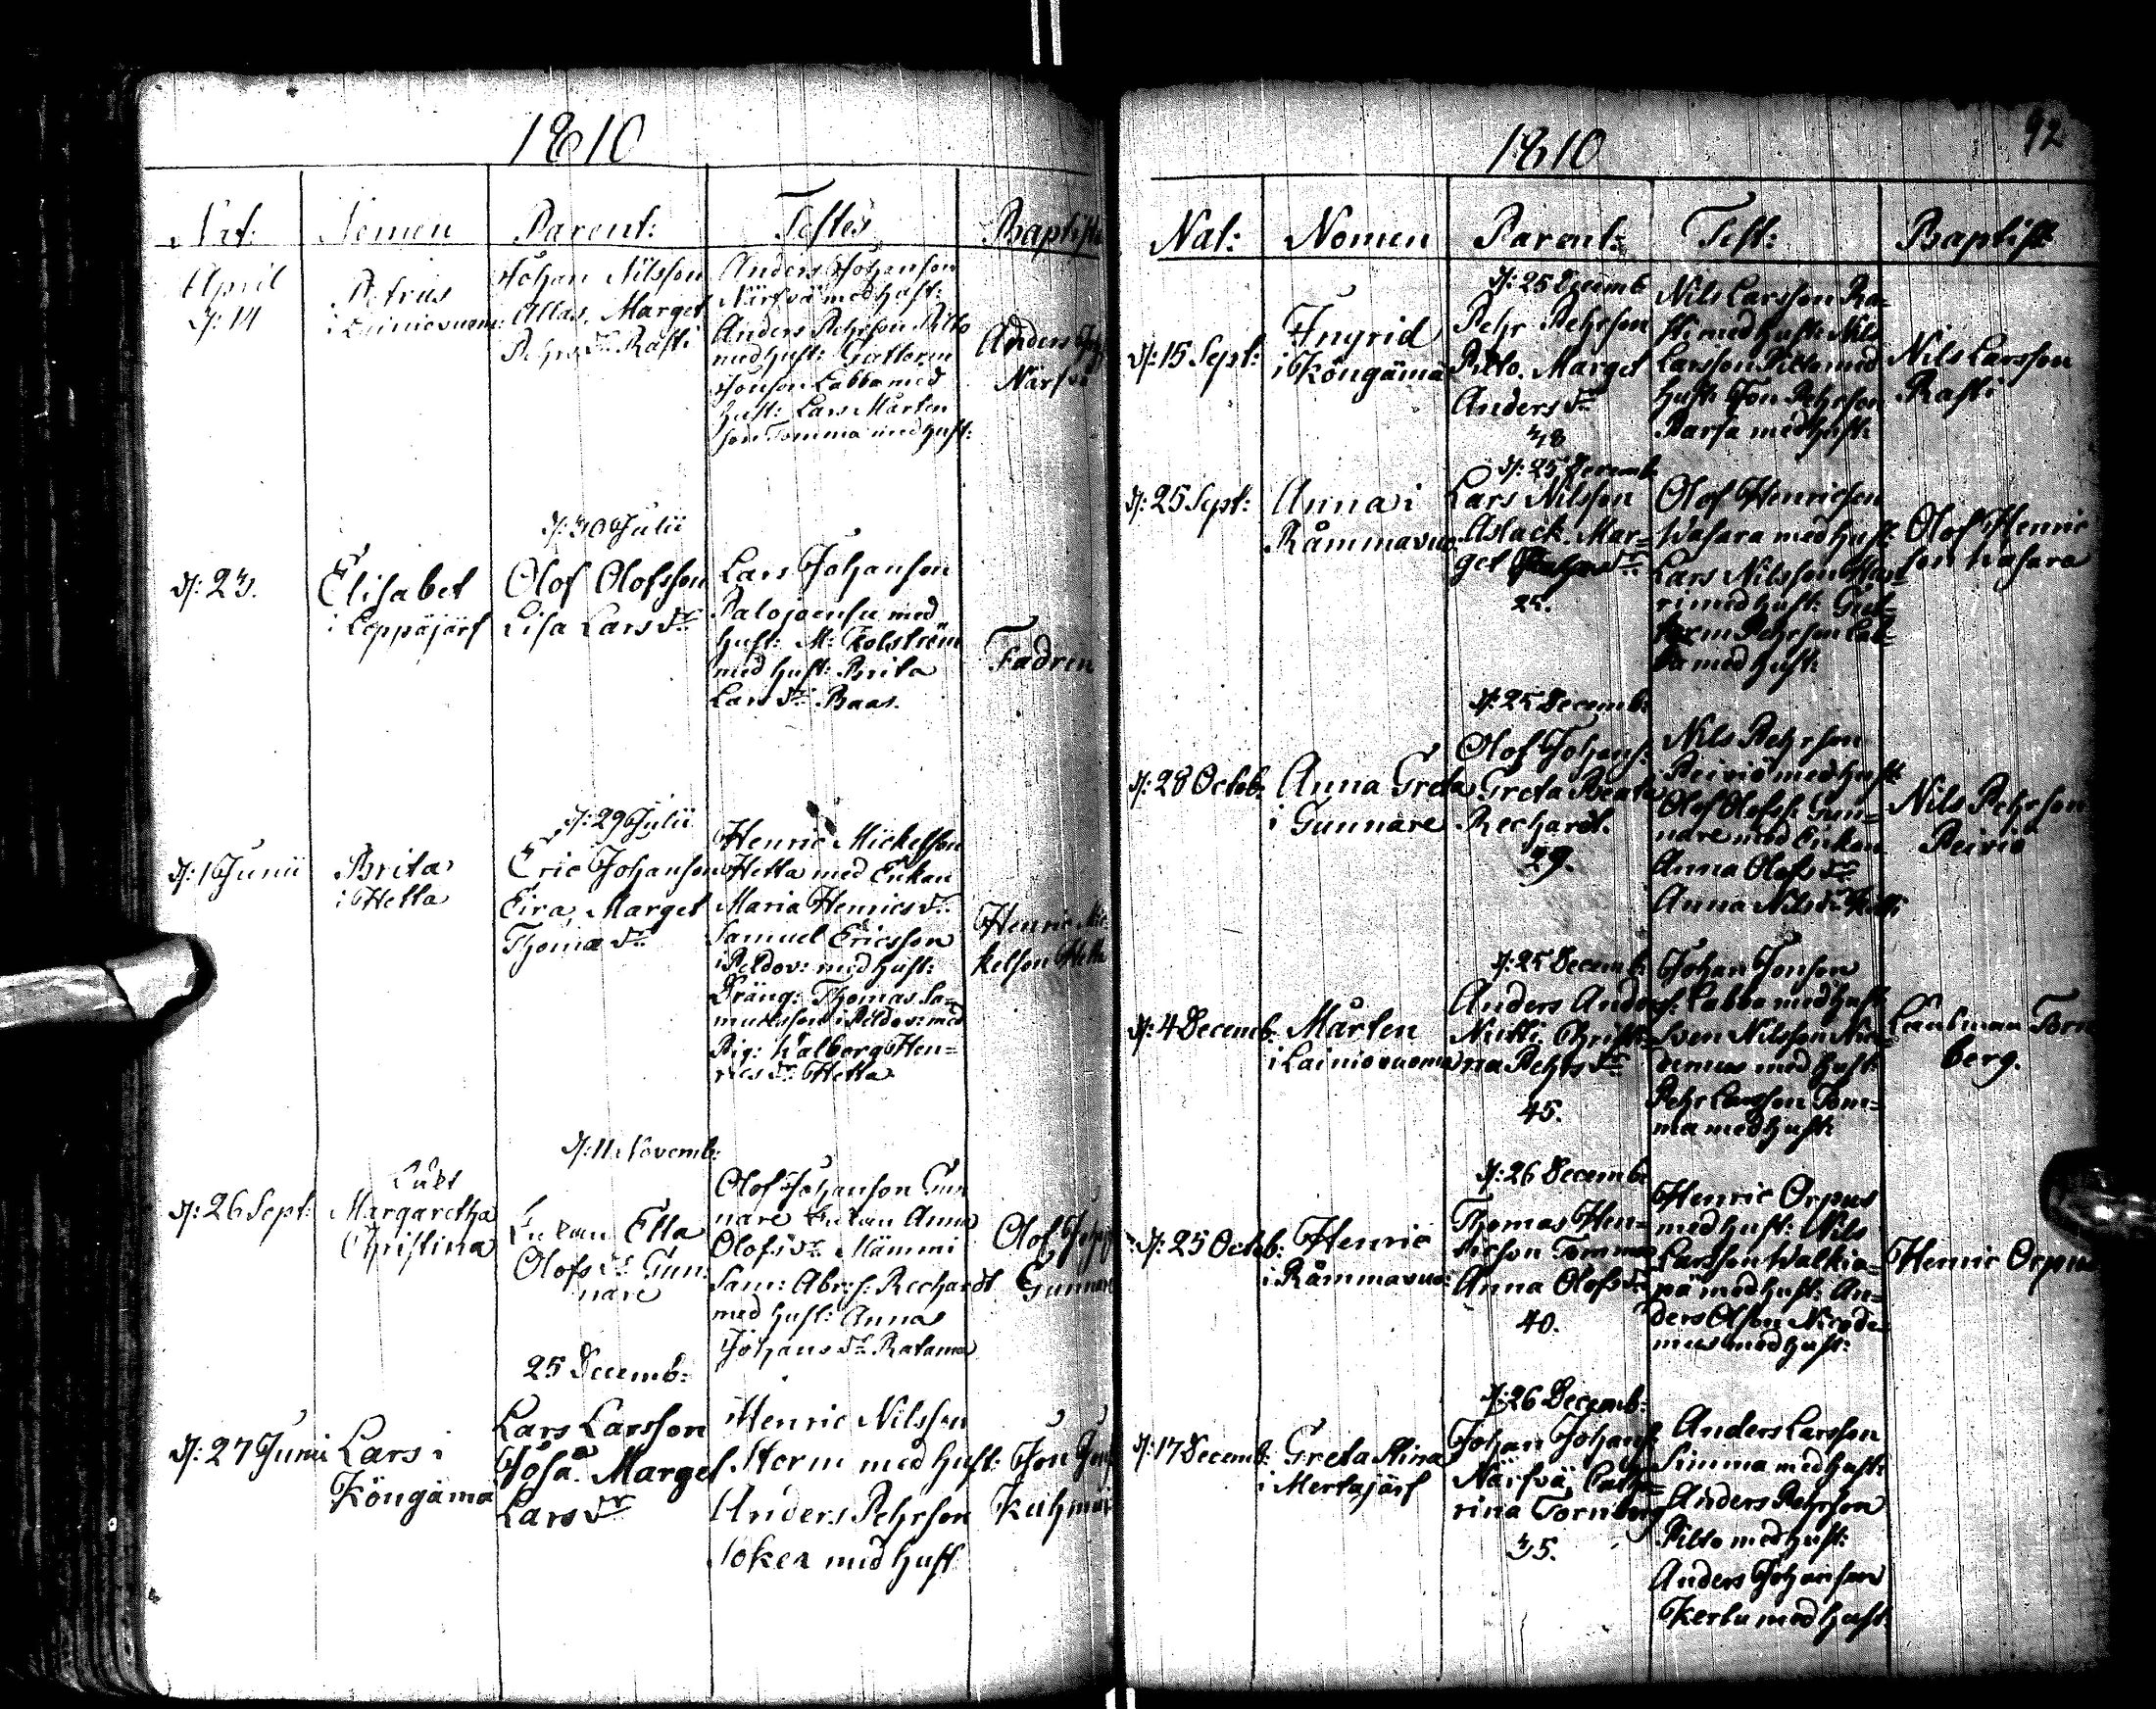 1810
Nat: Nomen Parent: Testes Baptist:
April
d: 14
Petrus
i Lainiovuom:
Johan Nilsson
Allas, Marget
Pehrs dr Rasti
Anders Johanson
Närfvä med hust:
Anders Pehrson Pilto
med hust: Guttorm
Jonson Labba med
hust: Lars Mårten
son Tomma med hust:
Anders Joh
Närfvä
d: 23.
Elisabet
i Leppäjärf
d: 30 Julii
Olof Olofsson
Lisa Lars dr
Lars Johanson
Palojoensu med
hust: M: Kolström
med hust: Brita
Lars dr Baas.
Fadren
d: 1 Junii
Brita
i Hetta
d: 29 Julii
Eric Johanson
Eira, Marget
Thomæ dr
Henric Mickelson
Hetta med Enkan
Maria Henrics dr
Samuel Ericsson
i Peldov: med hust:
Dräng: Thomas Sa=
muelsson i Peldov: med
Pig: Walborg Hen=
rics dr Hetta
Henric Mic
kelson Hetta
d: 26 Sept:
Margaretha
Christina
d: 11 Novemb:
Enkan Ella
Olofs dr Gun:
nare
Olof Johanson Gun
nare Enkan Anna
Olofs dr Mämmi
Sam: Abr:s: Rechardt
med hust: Anna
Johans dr Ratama
Olof Joh
Gunnare
d: 27 Junii
Lars i
Köngämä
25 Decemb:
Lars Larsson
Josa. Marget
Lars dr
Henric Nilsson
Storm med hust:
Anders Pehrson
Soker med hust
Jon Jons
Kuhmoi
92
1810
Nat: Nomen Parent: Test: Baptist:
d: 15 Sept:
Ingrid
i Köngämä
d: 25 Decemb
Pehr Pehrson
Pilto. Marget
Anders dr
38
Nils Larsson Ra=
sti med hust: Nils
Larsson Pilto med
hust: Jon Pehrson
Parfa med hust:
Nils Larsson
Rasti
d: 25 Sept:
Anna i
Råmmavuo:
d: 25 Decemb
Lars Nilsson
Aslack. Mar=
get dr
25.
Olof Henricson
Wasara med hust:
Lars Nilsson
ri med hust: Gut=
torm Pehrson Lab=
ba med hust:
Olof Henric
son Wasara
d: 28 Octob:
Anna Greta
i Gunnare
d: 25 Decemb:
Olof Johans:
Greta Beata
Rechardt.
29.
Nils Pehrson
Peivio med hust:
Olof Olofss: Gun=
nare med Enkan
Anna Olofs dr
Anna Nils dr
Nils Pehrson
Peivio
d: 4 Decemb:
Mårten
i Lainiovuoma
d: 25 Decemb:
Anders Anders:
Nutti, Christi=
na Pehrs dr
45.
Johan Jonson
Labba med hust:
Sven Nilsson Nico=
demus med hust:
Pehr Larsson Tom=
ma med hust:
Länsman Forn
berg.
d: 25 Octob:
Henric
i Råmmavuo:
d: 26 Decemb
Thomas Hen=
ricson Tomma
Anna Olofs dr
40.
Henric Orpus
med hust: Nils
Larsson Walkia=
pä med hust: An=
ders Olson Nicode=
mus med hust:
Henric Orpus
d: 17 Decemb:
Greta Stina
i Mertajärf
d: 26 Decemb:
Johan Johans:
Närfvä, Catha=
rina Fornberg
35.
Anders Larsson
Simma med hust:
Anders Pehrson
Pilto med hust:
Anders Johanson
Kertu med hust: